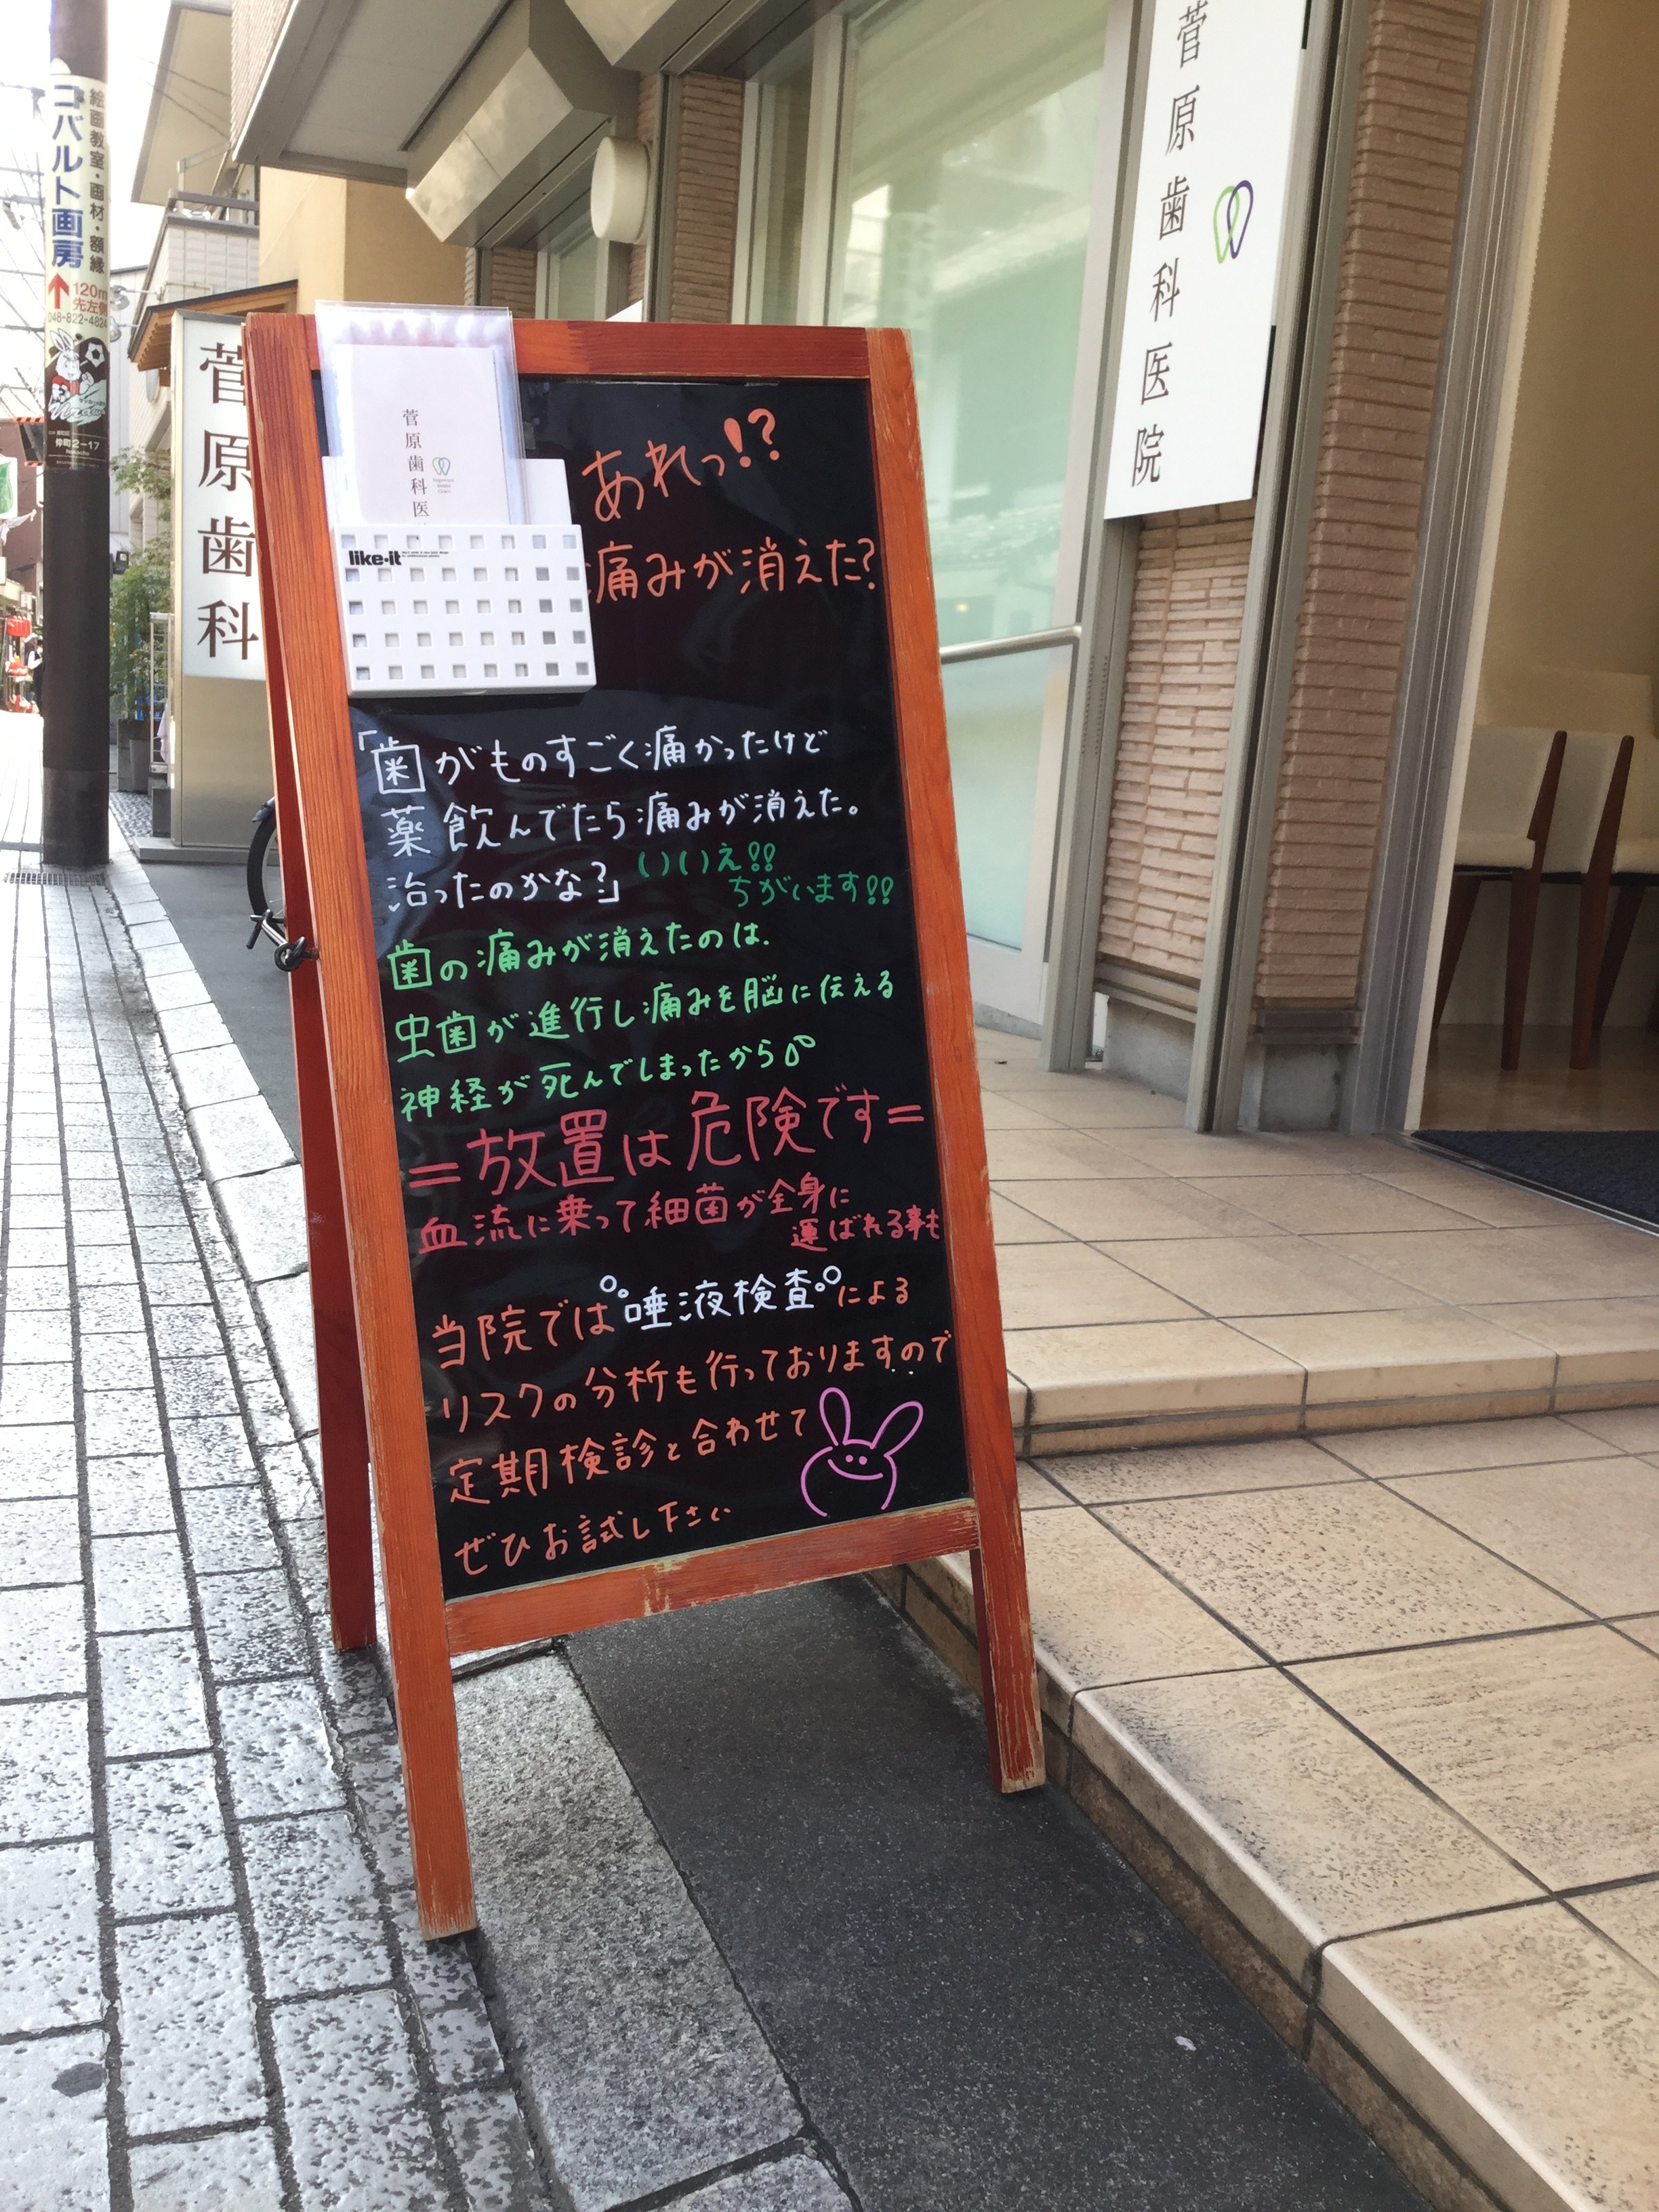 あれっ!?
痛みが消えた?
「歯がものすごく痛かったけど
薬飲んでたら痛みが消えた。
治ったのかな?」
いいえ!!
ちがいます!!
歯の痛みが消えたのは、
虫歯が進行し痛みを脳に伝える
神経が死んでしまったから
=放置は危険です=
血流に乗って細菌が全身に
運ばれる事も
当院では唾液検査による
リスクの分析も行っておりますので
定期検診と合わせて
ぜひお試し下さい
菅原歯科医
like-it
菅原歯科医院
菅原歯科
絵画教室・画材・額縁
コバルト画房
120m
先左側
048-822-4824
仲町2-17